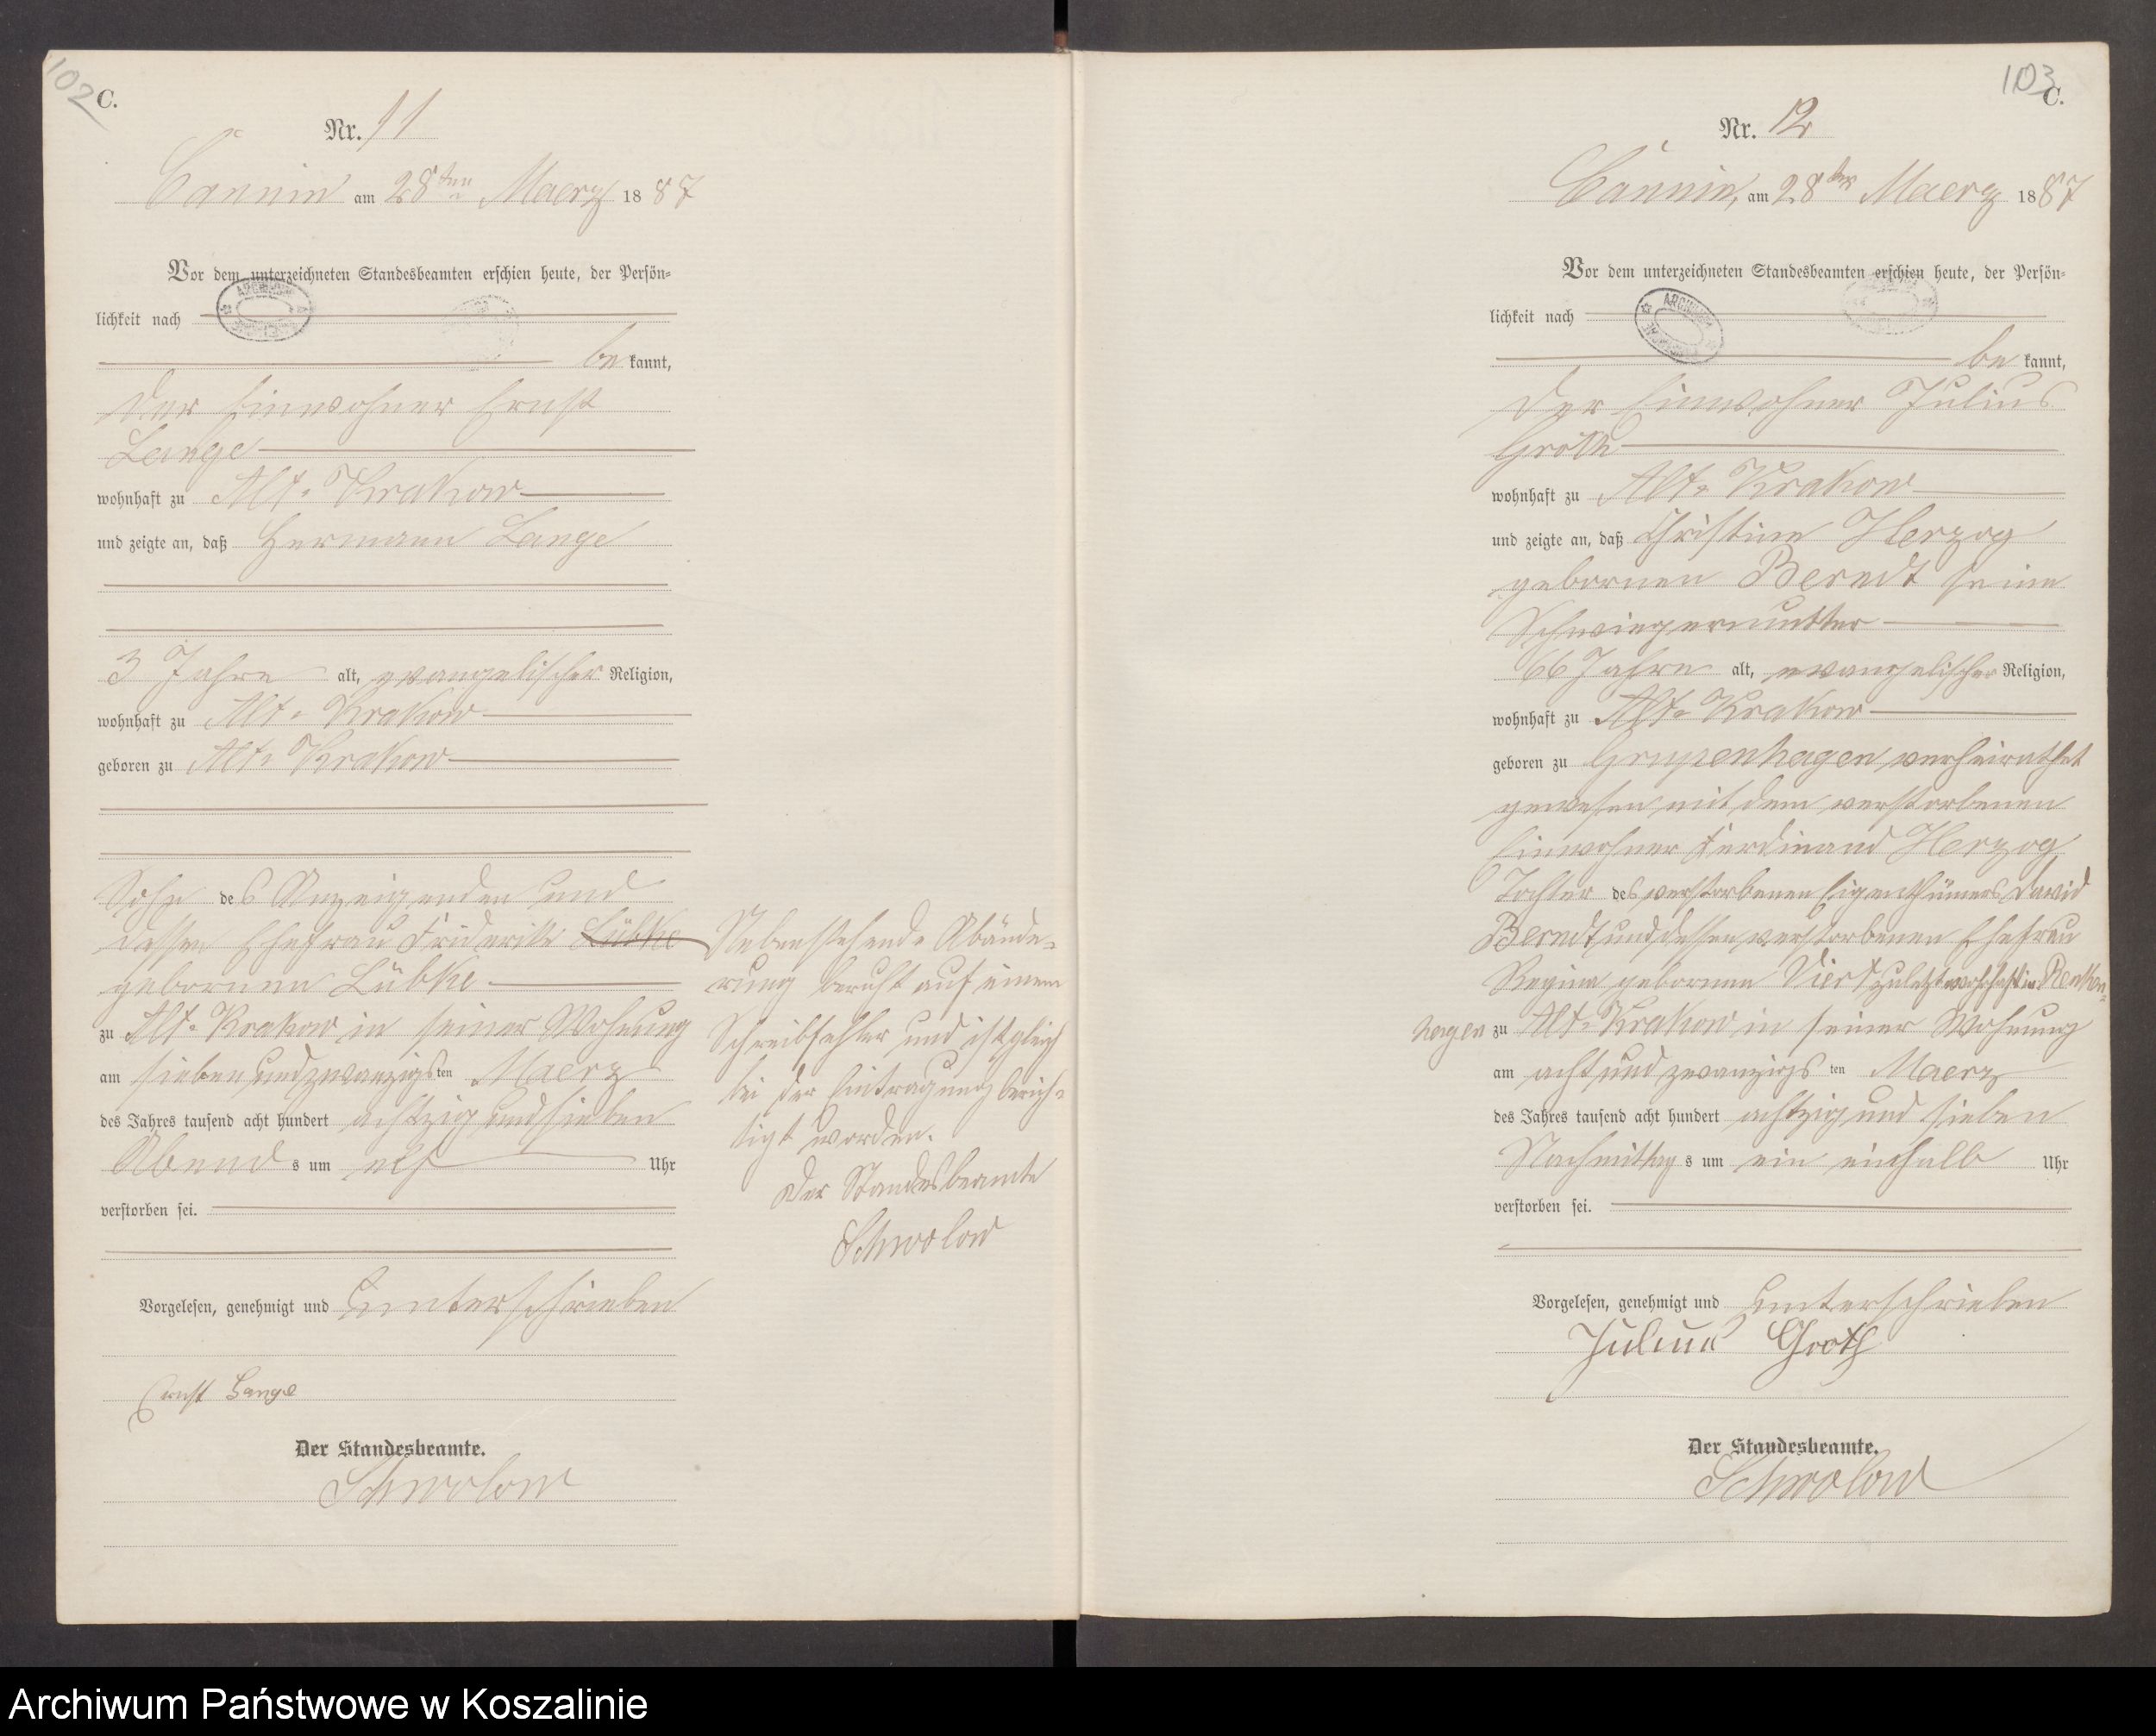 102
C.
Nr. 11
Cannin am 28ten Maerz 1887
Vor dem unterzeichneten Standesbeamten erschien heute, der Persön=
lichkeit nach
bekannt,
der Einwohner Ernst
Lange
wohnhaft zu Alt-Krakow
und zeigte an, daß Hermann Lange
3 Jahre alt, evangelischer Religion,
wohnhaft zu Alt-Krakow
geboren zu Alt-Krakow
Sohn des Anzeigenden und
dessen Ehefrau Friderike Lübke
gebornen Lübke
zu Alt-Krakow in seiner Wohnung
am sieben und zwanzigsten Maerz
des Jahres tausend acht hundert achtzig und sieben
Abends um elf Uhr
verstorben sei.
Vorgelesen, genehmigt und Unterschrieben
Ernst Lange
Der Standesbeamte.
Schwolow
Nebenstehende Abände=
rung beruht auf einem
Schreibfehler und ist gleich
bei der Eintragung berich=
tigt worden.
Der Standesbeamte
Schwolow
103
C.
Nr. 12
Cannin, am 28ten Maerz 1887
Vor dem unterzeichneten Standesbeamten erschien heute, der Persön=
lichkeit nach
bekannt,
der Einwohner Julius
Groth
wohnhaft zu Alt-Krakow
und zeigte an, daß Christine Herzog
gebornen Berndt seine
Schwiegermutter
66 Jahre alt, evangelischer Religion,
wohnhaft zu Alt-Krakow
geboren zu Grupenhagen verheirathet
gewesen mit dem verstorbenen
Einwohner Ferdinand Herzog
Tochter des verstorbenen Eigenthümers David
Berndt und dessen verstorbenen Ehefrau
Regine gebornen Viert zuletzt wohnhaft in
hagen zu Alt-Krakow in seiner Wohnung
am acht und zwanzigsten Maerz
des Jahres tausend acht hundert achtzig und sieben
Nachmittags um ein einhalb Uhr
verstorben sei.
Vorgelesen, genehmigt und Unterschrieben
Julius Groth
Der Standesbeamte.
Schwolow
Archiwum Państwowe w Koszalinie